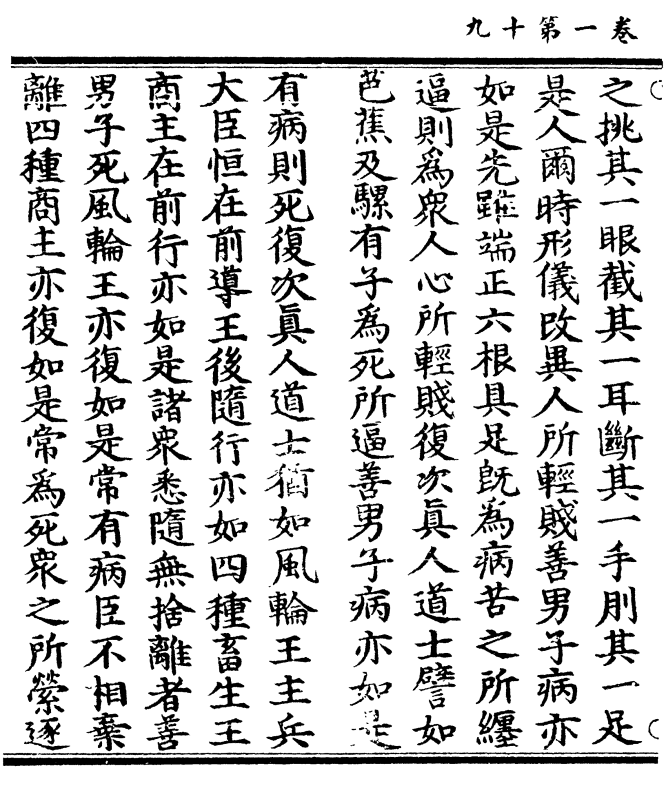 卷一第十九
之挑其一眼截其一耳斷其一手刖其一足
是人爾時形儀改異人所輕賤善男子病亦
如是先雖端正六根具足旣為病苦之所纒
逼則為衆人心所輕賤復次眞人道士譬如
芭蕉及騾有子為死所逼善男子病亦如是
有病則死復次眞人道士猶如風輪王主兵
大臣恒在前導王後隨行亦如四種畜生王
商主在前行亦如是諸衆悉隨無捨離者善
男子死風輪王亦復如是常有病臣不相棄
離四種商主亦復如是常為死衆之所縈逐